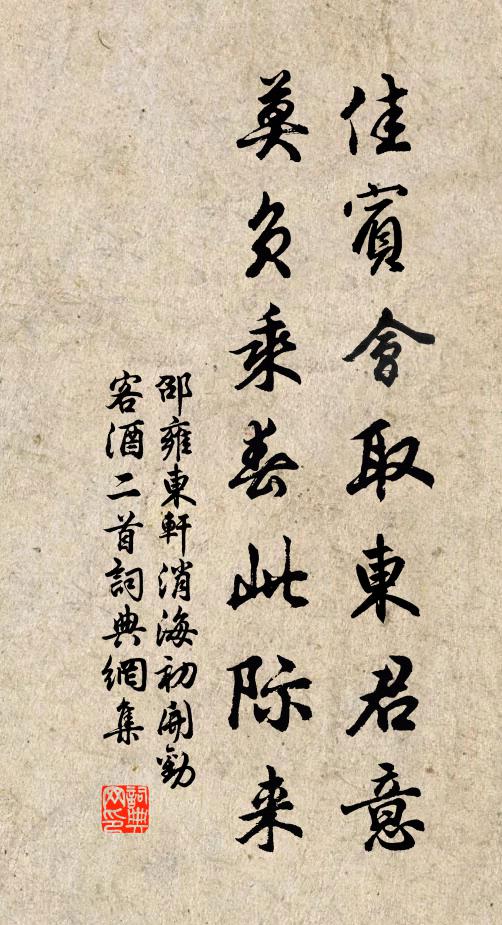 佳賓會取東君意
莫负乘春此际来
邵雍東軒消海初開勸
客酒二首詞典網集
詞典网印